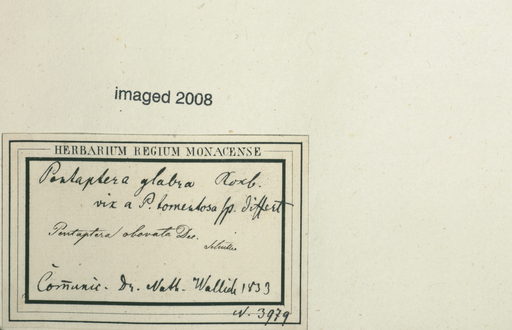 imaged 2008
HERBARIUM REGIUM MONACENSE
Pentaptera glabra Roxb.
vix a P. tomentosa sp. differt
Pentaptera obovata Dec.
Com̄unic. Dr. Nath. Wallich 1833
N. 3979